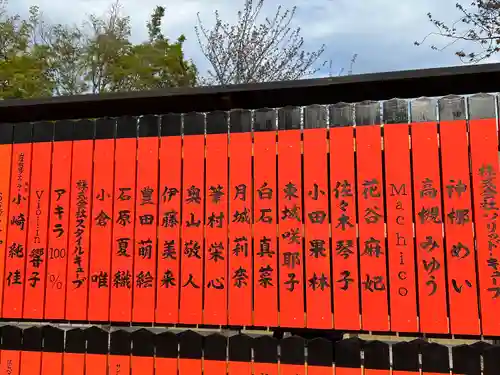 株式会社リンクキューブ
神棚めい
高槻みゆう
Machico
花谷麻妃
佐々木琴子
小田果林
東城咲耶子
白石真菜
月城莉奈
筆村栄心
奥山敬人
伊藤美来
豊田萌絵
石原夏織
小倉唯
株式会社スタイルキューブ
アキラ100%
Violin 響子
小崎純佳